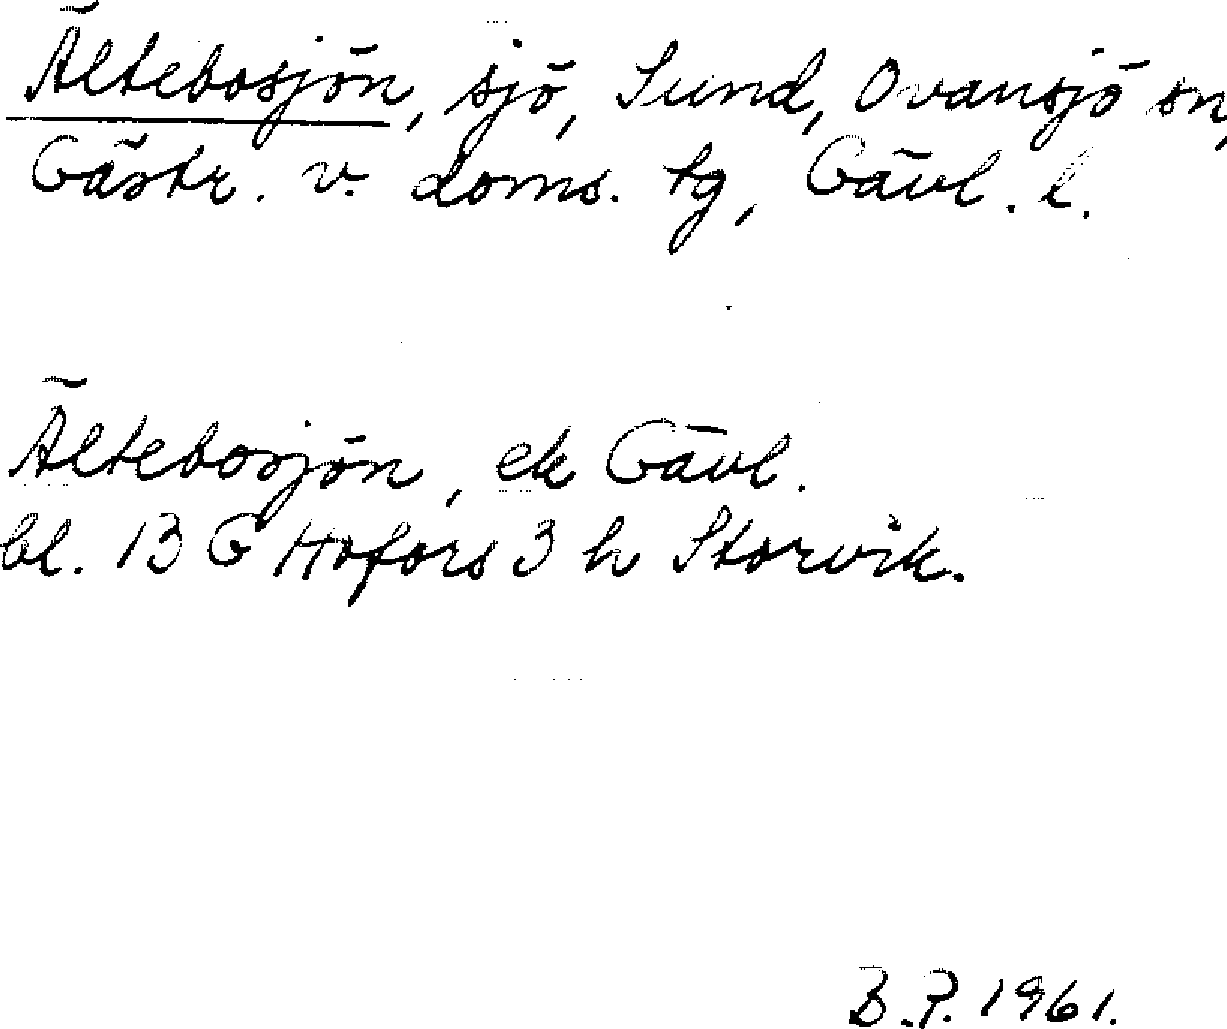 Ältebosjön, sjö, Sund, Ovansjö sn,
Gästr. v. doms. tg, Gävl. l.
Ältebosjön, ek Gävl.
bl. 13 G Hofors 3 h Storvik.
B.P. 1961.